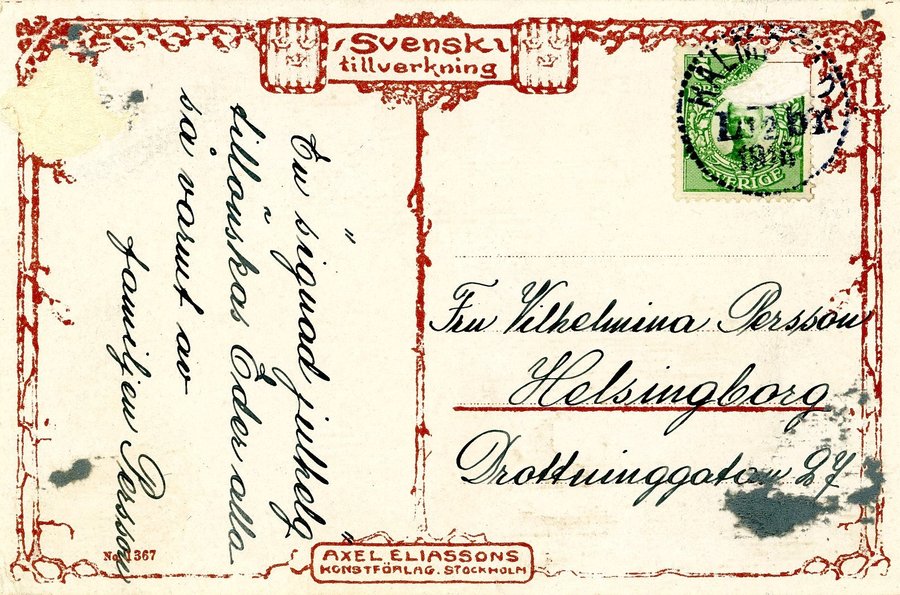 Svensk
tillverkning
"En signad julhelg"
tillönskas Eder alla
så varmt av
familjen Persson
SVERIGE
Fru Vilhelmina Persson
Helsingborg
Drottninggatan 27
No. 1367
AXEL ELIASSONS
KONSTFÖRLAG. STOCKHOLM